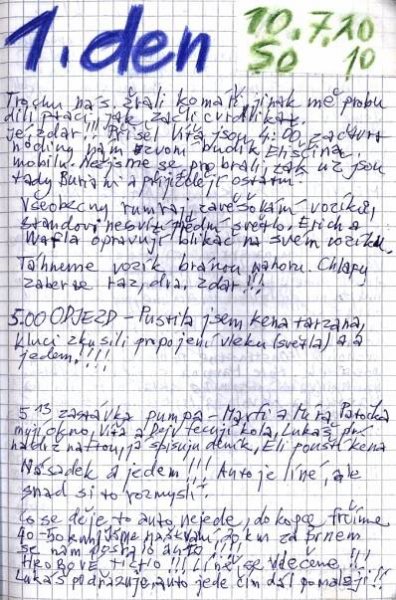 1. den
10.7.10
SO 10
Trochu nás žrali komáři, jinak mě probu
dili ptáci, jak začli cvrdlikat.
Je zdar!!! Přišel Víťa jsou 4:00, začtvrt
hodiny nám zvoní budík Eliščina
mobilu. Než jsme se probrali, tak už jsou
tady Buriani a přijíždějí ostatní.
Všeobecný zavěšování vozíků,
Standovi nesvítí přední světlo. Erich a
Wafla opravují blikač na svém vozíku.
Táhneme vozík bránou nahoru. Chlapy
zaber se raz, dva, zdar!!!
5.00 ODJEZD - Pustila jsem kena tarzana,
kluci zkusili propojení vleku (světla) a a
jedem.!!!!
5 13 zastávka pumpa - Marti a Míra Patočka
myjí okno, Víťa a Dejv kola, Lukáš
nádrž naftou, já spisuju deník, Eli pouští kena
Násadek a jedem!!! Auto je líné, ale
snad si to rozmyslí.
Co se děje to auto nejede, do kopce frčíme
40-50 km/ za Brnem
se nám auto!!!!
HROBOVÉ TICHO!!!
Lukáš auto jede čím dál pomaleji!!!